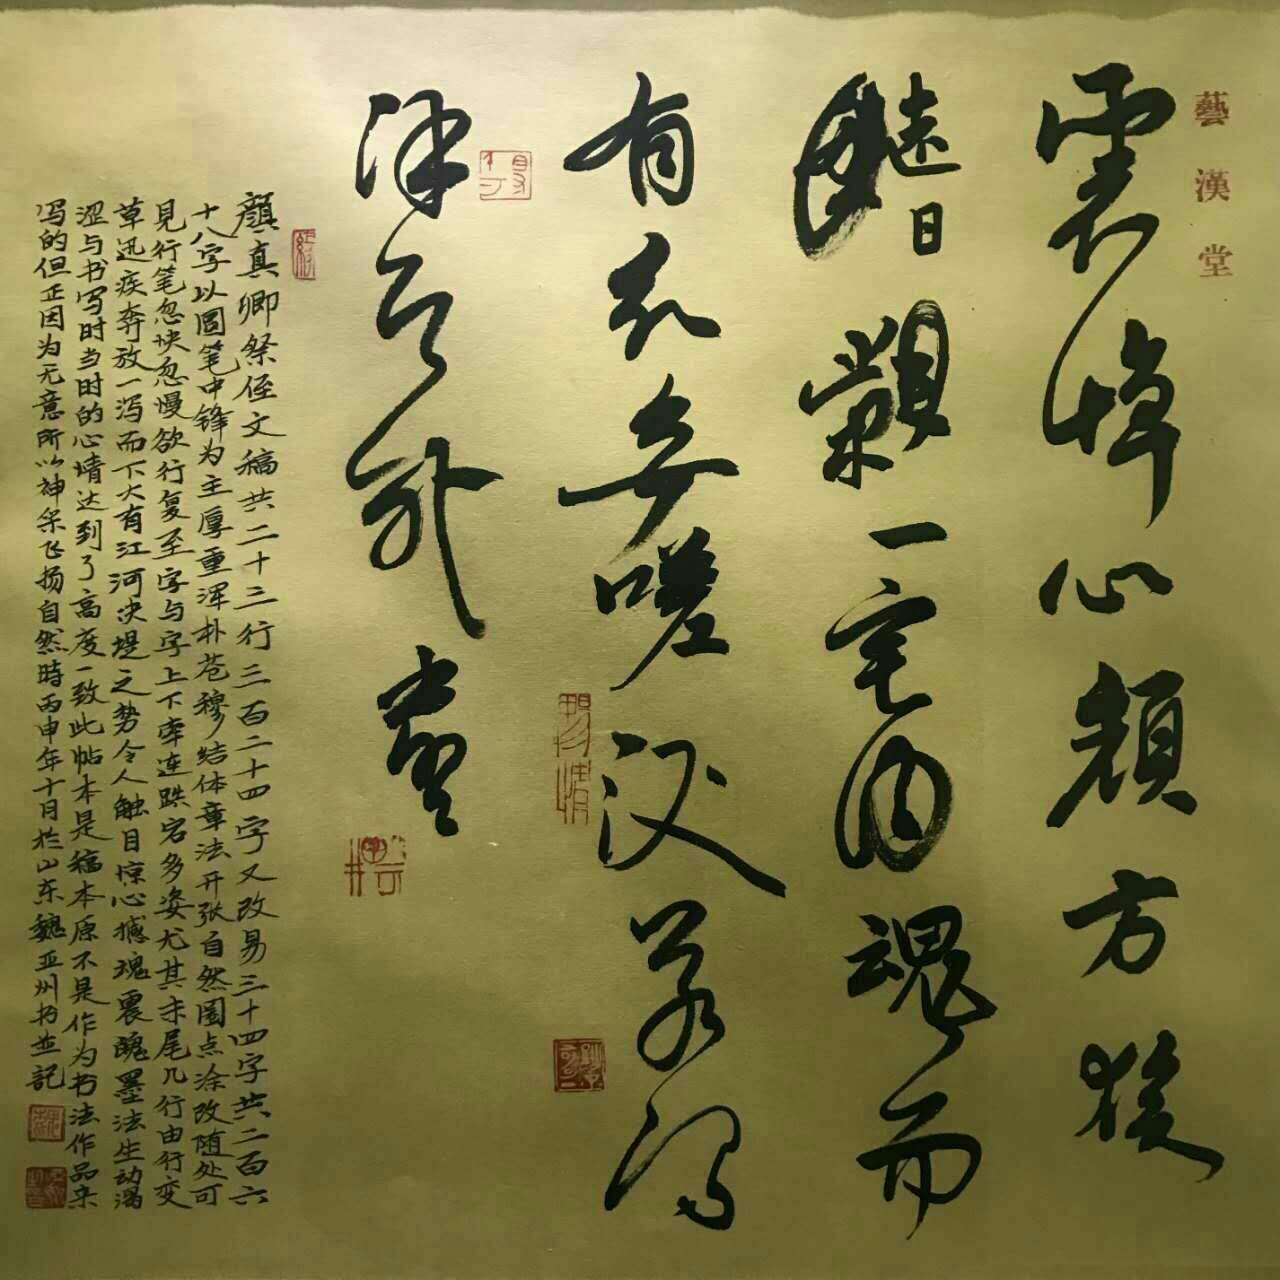 藝漢堂
震悼心顏方竢
遠日一宅魂而
有知無嗟久客嗚
呼哀哉尚饗
顏真卿祭侄文稿共二十三行三百二十四字又改易三十四字共二百六
十八字以圆笔中锋为主厚重浑朴苍穆结体章法开张自然圈点涂改随处可
見行笔忽快忽慢欲行复至字与字上下牵连跌宕多姿尤其末尾几行由行变
草迅疾奔放一泻而下大有江河决堤之势令人触目惊心撼魂震魄墨法生动渴
涩与书写时当时的心情达到了高度一致此帖本是稿本原不是作为书法作品来
写的但正因为无意所以神采飞扬自然時丙申年十月於山东魏亚州书並記